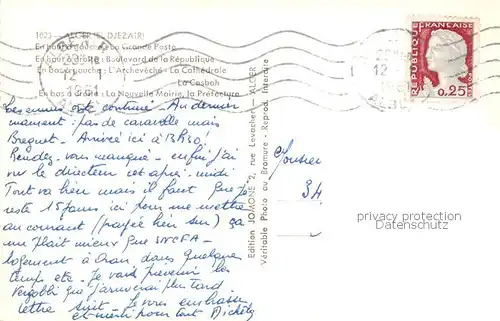 1023 - ALGER (EL DJEZAIR)
En haut à gauche : La Grande Poste
En haut à droite : Boulevard de la République
En bas à gauche : L'Archevêché - La Cathédrale
La Casbah
En bas à droite : La Nouvelle Mairie, la Préfecture
ont continué - Au dernier
moment : pas de caravelle mais
Breguet - Arrivée ici à 13h30!
Rendez-vous manqué - enfin j'ai
vu le directeur cet après-midi
Tout va bien mais il faut que je
reste 15 jours ici pour me mettre
au courant (payée bien sûr) ça
me plait mieux que SNCFA -
logement à Oran dans quelque
temps etc. Je vais prévenir les
que j'arriverai plus tard
lettre suit - Je vous embrasse
et merci pour tout Michèle
Edition JOMONE 2, rue Levacher - ALGER
Véritable Photo au Bromure - Reprod. Interdite
34
REPUBLIQUE
FRANÇAISE
0,25
12
privacy protection
Datenschutz